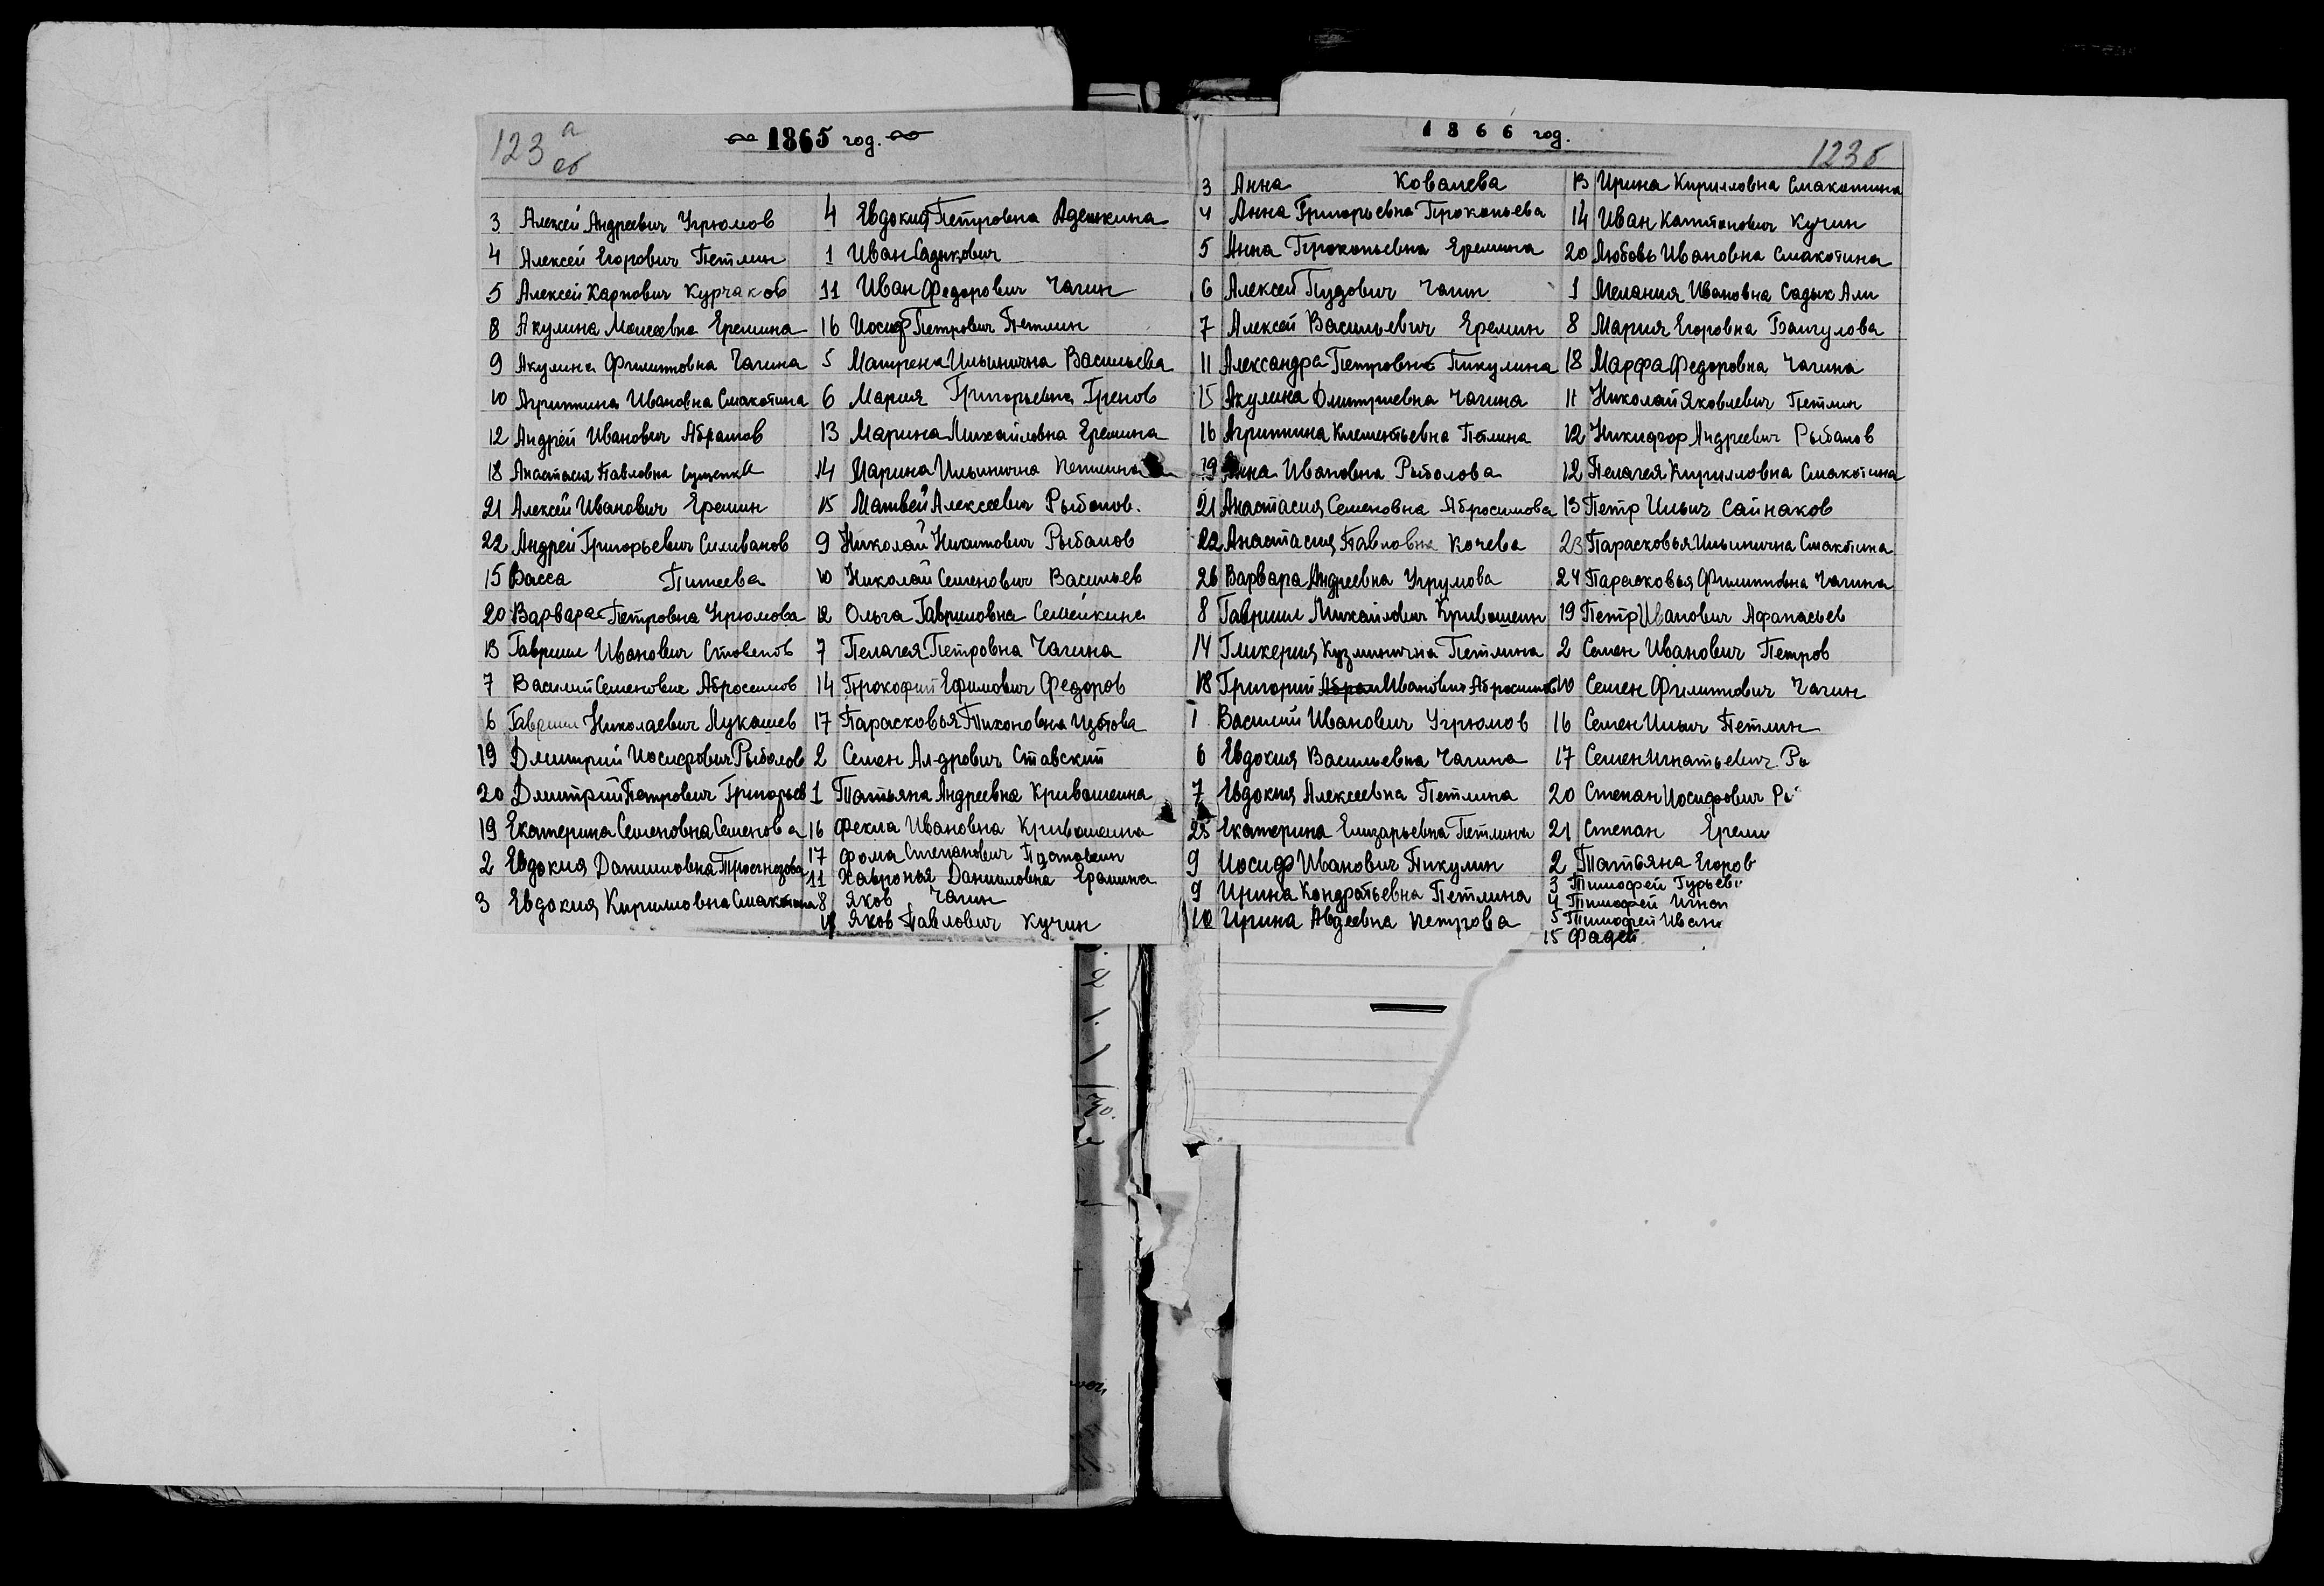 123 а
об
1865 год.
3 Алексей Андреевич Угрюмов
4 Алексей Егорович Петлин
5 Алексей Карпович Курчаков
8 Акулина Моисеевна Еремина
9 Акулина Филиповна Чагина
10 Агрипина Ивановна Смакотина
12 Андрей Иванович Абрамов
18 Анастасия Павловна
21 Алексей Иванович Еремин
22 Андрей Григорьевич Силиванов
15 Васса Питеева
20 Варвара Петровна Угрюмова
13 Гавриил Иванович
7 Василий Семенович Абросимов
6 Гавриил Николаевич Лукашев
19 Дмитрий Иосифович Рыбалов
20 Дмитрий Петрович Григорьев
19 Екатерина Семеновна Семенова
2 Евдокия Даниловна
3 Евдокия Кирилловна Смакотина
4 Евдокия Петровна Адешкина
1 Иван Садыкович
11 Иван Федорович Чагин
16 Иосиф Петрович Петлин
5 Матрена Ильинична Васильева
6 Мария Григорьевна Греков
13 Марина Михайловна Еремина
14 Марина Ильинична Петлина
15 Матвей Алексеевич Рыбалов.
9 Николай Никитович Рыбалов
10 Николай Семенович Васильев
12 Ольга Гавриловна Семейкина
7 Пелагея Петровна Чагина
14 Прокофий Ефимович Федоров
17 Парасковья Тихоновна Изотова
2 Семен Ал-дрович Ставский
1 Татьяна Андреевна Кривошеина
16 Фекла Ивановна Кривошеина
17 Фома Степанович
11 Хавронья Даниловна Ерамина
8 Яков Чагин
Яков Павлович Кучин
1866 год.
123б
3 Анна Ковалева
4 Анна Григорьевна Прокопьева
5 Анна Прокопьевна Еремина
6 Алексей Пудович Чагин
7 Алексей Васильевич Еремин
11 Александра Петровна Пикулина
15 Акулина Дмитриевна Чагина
16 Агрипина Клементьевна Петлина
19 Анна Ивановна Рыболова
21 Анастасия Семеновна Абросимова
22 Анастасия Павловна Кочева
26 Варвара Андреевна Угрумова
8 Гавриил Михайлович Кривошеин
14 Гликерия Кузминична Петлина
18 Григорий Абрам Иванович Абросимов
1 Василий Иванович Угрюмов
6 Евдокия Васильевна Чагина
7 Евдокия Алексеевна Петлина
25 Екатерина Елизарьевна Петлина
9 Иосиф Иванович Пикулин
9 Ирина Кондратьевна Петлина
10 Ирина Авдеевна
13 Ирина Кирилловна Смакотина
14 Иван Капитонович Кучин
20 Любовь Ивановна Смакотина
1 Мелания Ивановна Садык Али
8 Мария Егоровна Баигулова
18 Марфа Федоровна Чагина
11 Николай Яковлевич Петлин
12 Никифор Андреевич Рыбалов
12 Пелагея Кирилловна Смакотина
13 Петр Ильич Сайнаков
23 Парасковья Ильинична Смакотина
24 Парасковья Филиповна Чагина
19 Петр Иванович Афанасьев
2 Семен Иванович Петров
10 Семен Филипович Чагин
16 Семен Ильич Петлин
17 Семен Игнатьевич Ры
20 Степан Иосифович Ры
21 Степан Ереми
2 Татьяна Егоров
3 Тимофей Гурьеви
4 Тимофей Игнат
5 Тимофей Ивано
15 Фадей